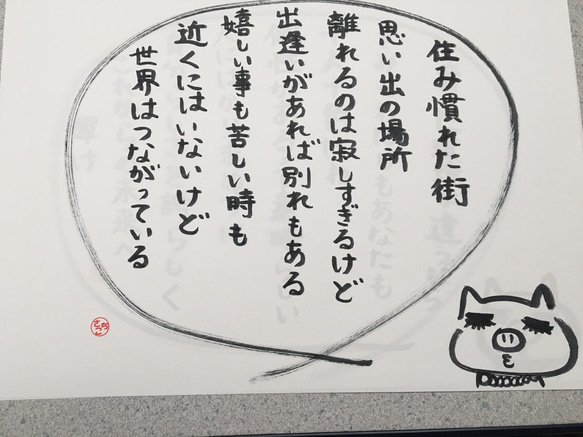 住み慣れた街
思い出の場所
離れるのは寂しすぎるけど
出逢いがあれば別れもある
嬉しい事も苦しい時も
近くにはいないけど
世界はつながっている